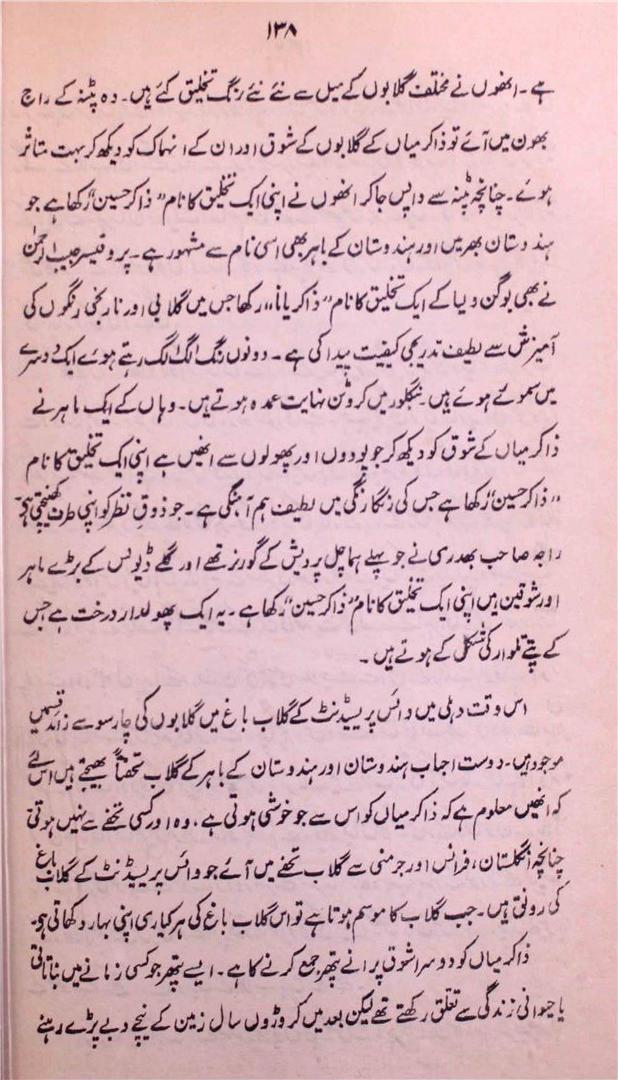 ۱۳۸
ہے۔ انھوں نے مختلف گلابوں کے میل سے نئے نئے رنگ تخلیق کئے ہیں۔ وہ پٹنہ کے راج
بھون میں آئے تو ذاکر میاں کے گلابوں کے شوق اور ان کے انہماک کو دیکھ کر بہت متاثر
ہوئے۔ چنانچہ پٹنہ سے واپس جاکر انھوں نے اپنی ایک تخلیق کا نام "ذاکر حسین" رکھا ہے جو
ہندوستان بھر میں اور ہندوستان کے باہر بھی اسی نام سے مشہور ہے۔ پروفیسر حبیب الرحمٰن
نے بھی بوگن ویلیا کے ایک تخلیق کا نام "ذاکریانا" رکھا جس میں گلابی اور نارنجی رنگوں کی
آمیزش سے لطیف تدریجی کیفیت پیدا کی ہے۔ دونوں رنگ الگ الگ رہتے ہوئے ایک دوسرے
میں سموئے ہوئے ہیں۔ بنگلور میں کروٹن نہایت عمدہ ہوتے ہیں۔ وہاں کے ایک ماہر نے
ذاکر میاں کے شوق کو دیکھ کر جو پودوں اور پھولوں سے انھیں ہے اپنی ایک تخلیق کا نام
"ذاکر حسین" رکھا ہے جس کی رنگارنگی میں لطیف ہم آہنگی ہے۔ جو ذوقِ نظر کو اپنی طرف کھینچتی ہے۔
راجہ صاحب بھدری نے جو پہلے ہماچل پردیش کے گورنر تھے اور گلے ڈیولس کے بڑے ماہر
اور شوقین ہیں اپنی ایک تخلیق کا نام "ذاکر حسین" رکھا ہے۔ یہ ایک پھولدار درخت ہے جس
کے پتے تلوار کی شکل کے ہوتے ہیں۔
اس وقت دہلی میں وائس پریسیڈنٹ کے گلاب باغ میں گلابوں کی چار سو سے زائد قسمیں
موجود ہیں۔ دوست احباب ہندوستان اور ہندوستان کے باہر کے گلاب تحفتاً بھیجتے ہیں اس لئے
کہ انھیں معلوم ہے کہ ذاکر میاں کو اس سے جو خوشی ہوتی ہے، وہ اور کسی تحفے سے نہیں ہوتی
چنانچہ انگلستان، فرانس اور جرمنی سے گلاب تحفے میں آئے جو وائس پریسیڈنٹ کے گلاب باغ
کی رونق ہیں۔ جب گلاب کا موسم ہوتا ہے تو اس گلاب باغ کی ہر کیاری اپنی بہار دکھاتی ہے۔
ذاکر میاں کو دوسرا شوق پرانے پتھر جمع کرنے کا ہے۔ ایسے پتھر جو کسی زمانے میں نباتاتی
یا حیوانی زندگی سے تعلق رکھتے تھے لیکن بعد میں کروڑوں سال زمین کے نیچے دبے پڑے رہنے